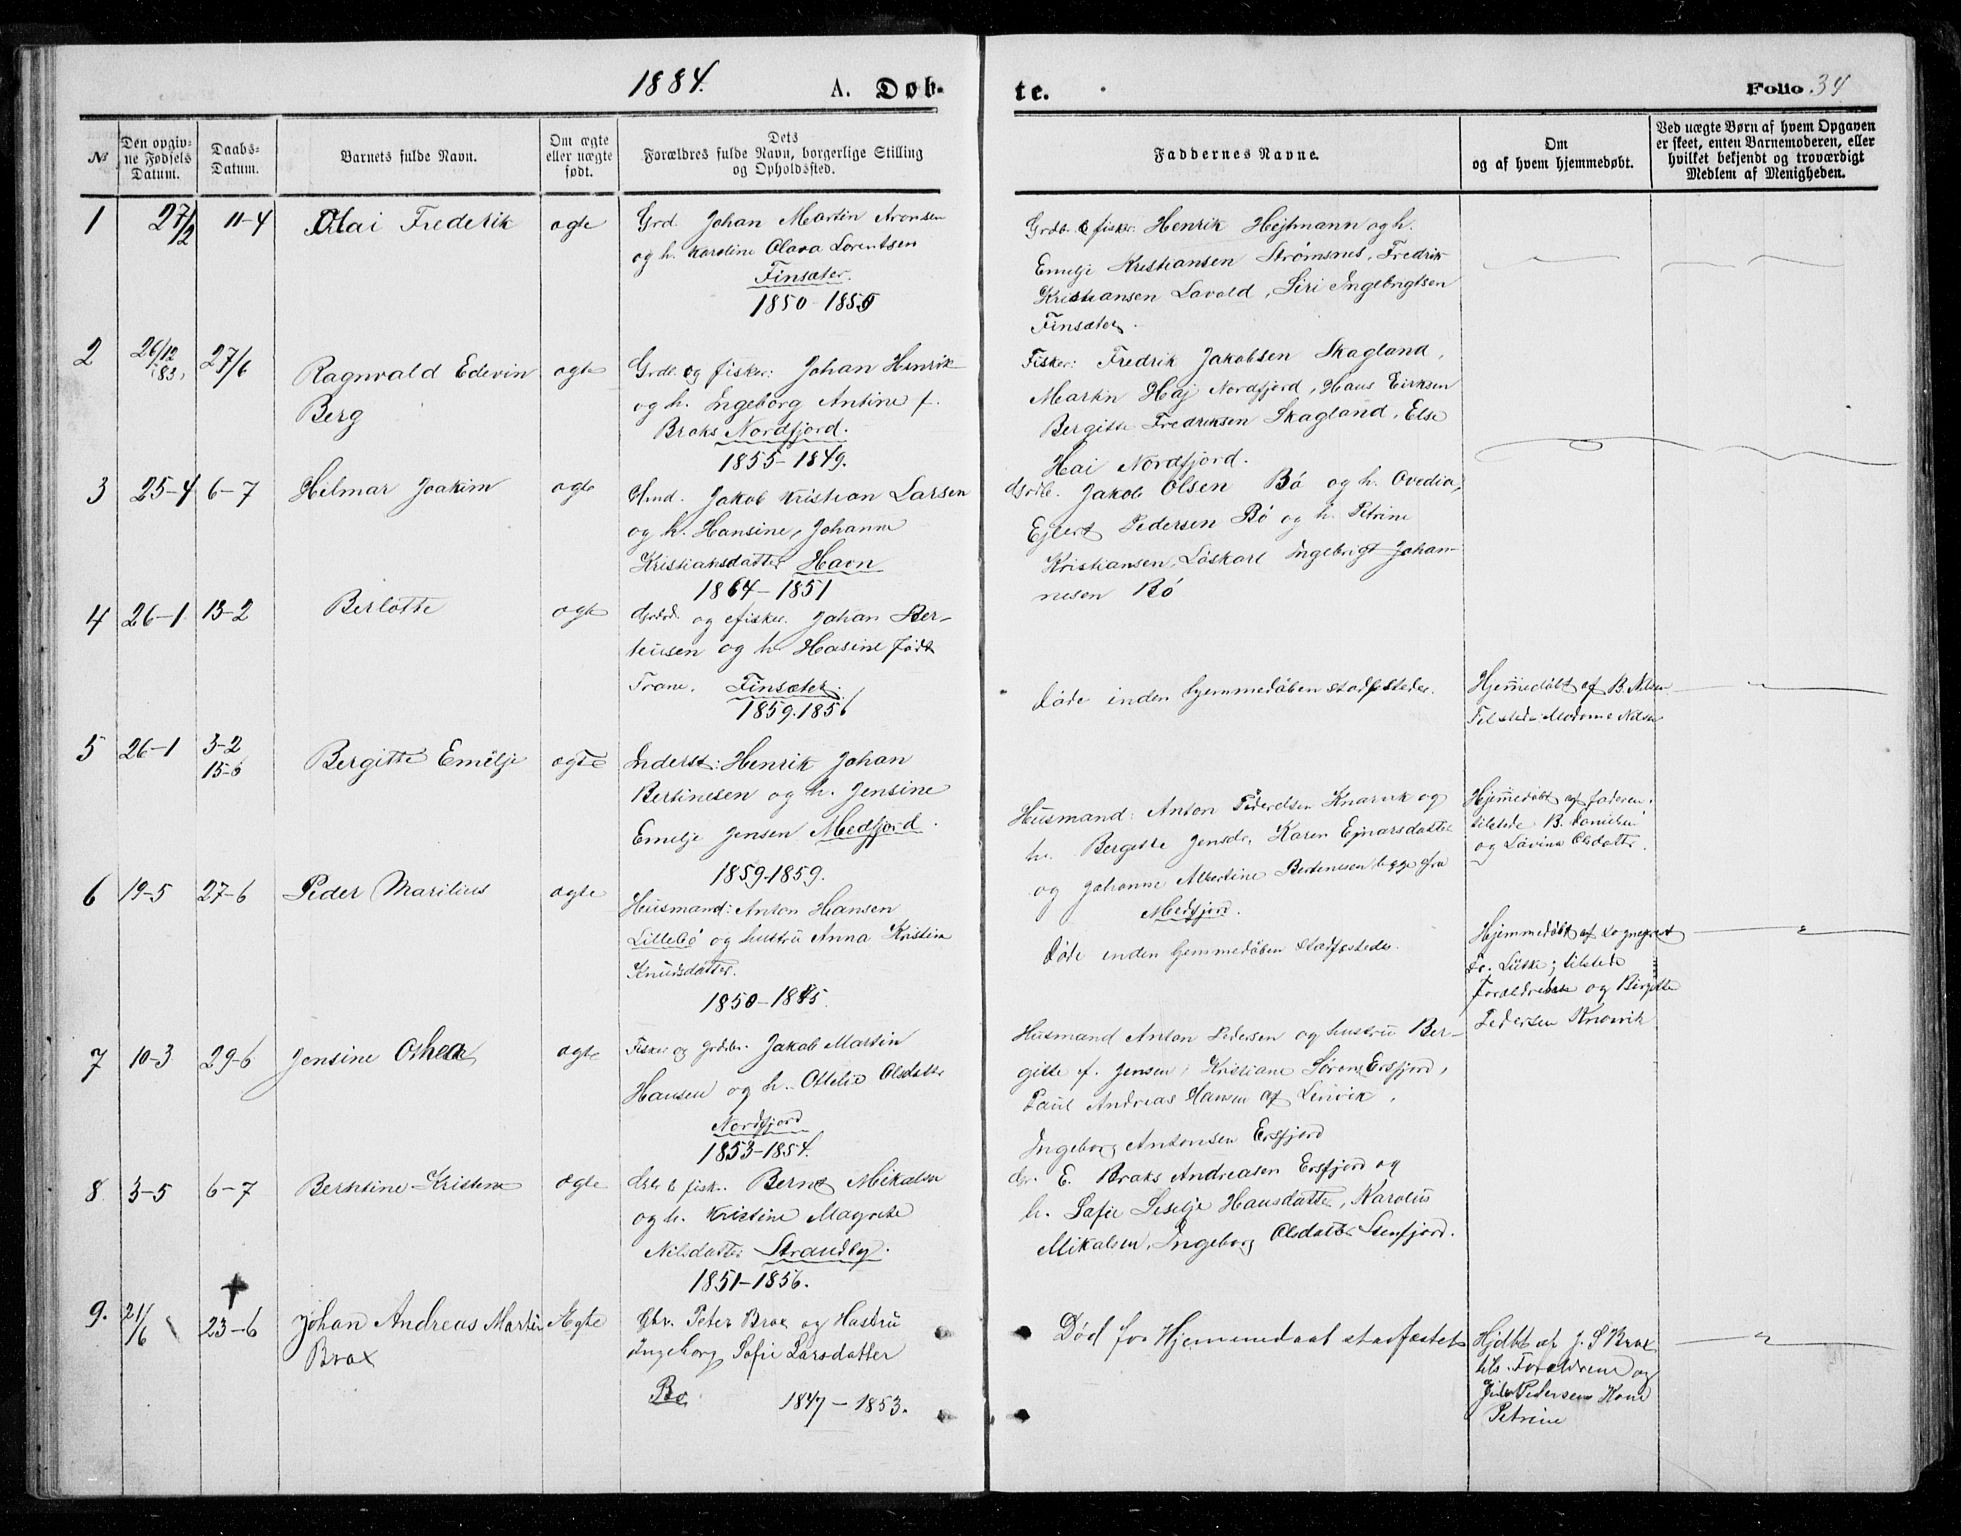 1884.
A. Døb-
te.
Folio 34
№
Den opgiv-
ne Fødsels
Datum.
Daabs-
Datum.
Barnets fulde Navn.
Om ægte
eller uægte
født.
Dets
Forældres fulde Navn, borgerlige Stilling
og Opholdssted.
Faddernes Navne.
Om
og af hvem hjemmedøbt.
Ved uægte Børn af hvem Opgaven
er skeet, enten Barnemoderen, eller
hvilket bekjendt og troværdigt
Medlem af Menigheden.
1 27/2 11-4 Olai Frederik ægte
Grd. Johan Martin Aronsen
og h. Karoline Olava Lorentsen
Finsæter.
1850-1855
Grdb. & fisker Henrik Hejtmann og h.
Emelje Kristiansen Strømsnes, Fredrik
Kristiansen Lavold, Siri Ingebrigtsen
Finsæter.
2 26/12 83, 27/6 Ragnvald Edevin ægte
Berg
Grdb. og fisker: Johan Henrik
og h. Ingeborg Antine f.
Braks Nordfjord.
1855-1849.
Fisker: Fredrik Jakobsen Skagland,
Martin Haj Nordfjord, Hans Eirksen
Bergitte Fredriksen Skagland, Else
Hai Nordfjord.
3 25-4 6-7 Hilmar Joakim ægte
Hmd. Jakob Kristian Larsen
og h. Hansine, Johanne
Kristiansdatter Havn
1864-1851
Grdb. Jakob Olsen Bø og h. Ovedia,
Ejlert Pedersen Bø og h. Petrine
Kristiansen, Løskarl Ingebrigt Johan-
nesen Bø
4 26-1 13-2 Berlotte ægte
Grdbr. og fisker. Johan Ber-
teusen og h. Hasine født
Trane. Finsæter
1859.1856
Døde inden hjemmedåben stadfæstedes.
Hjemmedøbt af B. Nilsen
Tilstede Madame Nilsen
5 26-1 3-2
15-6
Bergitte Emilje ægte
Inderst: Henrik Johan
Bertinesen og h. Jensine
Emelje Jensen Medfjord.
1859-1859.
Husmand: Anton Pedersen Knarvik og
h. Bergette Jensdr, Karen Ejnarsdatter
og Johanne Albertine Bertenesen begge fra
Medfjord.
Hjemmedøbt af faderen.
tilstede B. Danielsen
og Lavina Olsdatter.
6 19-5 27-6 Peder Marilius ægte
Husmand: Anton Hansen
Lillebø og hustru Anna Kristine
Knudsdatter.
1850-1845.
Døde inden hjemmedåben stadfæstedes.
Hjemmedøbt af Sognepræst
Fr. Lütke; tilstede
Forældrene og Birgitte
Pedersen Knarvik
7 10-3 29-6 Jensine Othea ægte
Fisker og grdbr. Jakob Martin
Hansen og h. Ottelie Olsdatter
Nordfjord
1853-1854.
Husmand Anton Pedersen og hustru Ber-
gitte f. Jensen, Kristiane Sørens Ersfjord,
Paul Andreas Hansen af Lenvik,
Ingeborg Antonsen Ersfjord
8. 3-5 6-7 Berntine Kristene ægte
Grb & fisk. Bernt Mikalsen
og h. Kristine Magrete
Nilsdatter Strandby.
1851-1856.
Gr. E. Braks Andreasen Ersfjord og
h. Safie Seselje Hansdatter, Karolus
Mikalsen, Ingeborg Olsdatter Stenfjord.
9. 21/6 23-6 Johan Andreas Martin Ægte
Brox
Gbr. Peter Brox og Hustru
Ingeborg Sofie Larsdatter
Bø 1847-1853.
Død før Hjemmedaab stadfæstet
Hjdbt af J. S Brox
tils. Forældrene og
Pedersens Kone
Petrine